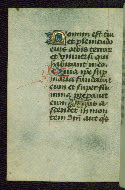 Domini est terra
et plenitudo
eius orbis terrar
et universi qui
habitant in eo
Quia ipse sup
maria fundavit
eum et super flu
mina preparavit
eum Quis as
cendet in mon
tem dni aut qis